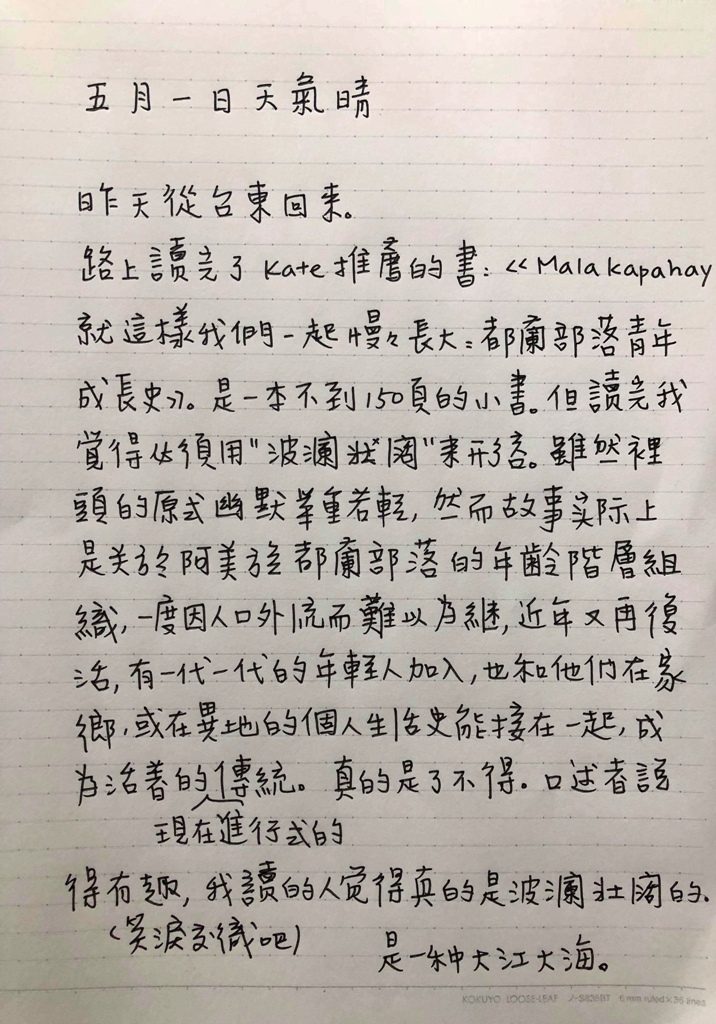 五月一日天氣晴
昨天從台東回來。
路上讀完了 Kate 推薦的書：《Malakapahay
就這樣我們一起慢々長大：都蘭部落青年
成長史》。是一本不到150頁的小書。但讀完我
覺得必須用"波瀾壯闊"來形容。雖然裡
頭的原式幽默舉重若輕，然而故事实际上
是关於阿美族都蘭部落的年齡階層組
織，一度因人口外流而難以為繼，近年又再復
活，有一代一代的年輕人加入，也和他們在家
鄉，或在異地的個人生活史能接在一起，成
為活著的傳統。真的是了不得。口述者說
現在進行式的
得有趣，我讀的人覚得真的是波瀾壯闊的。
（笑淚交織吧）
是一种大江大海。
KOKUYO LOOSE-LEAF ノ-S836BT 6mm ruled×36 lines